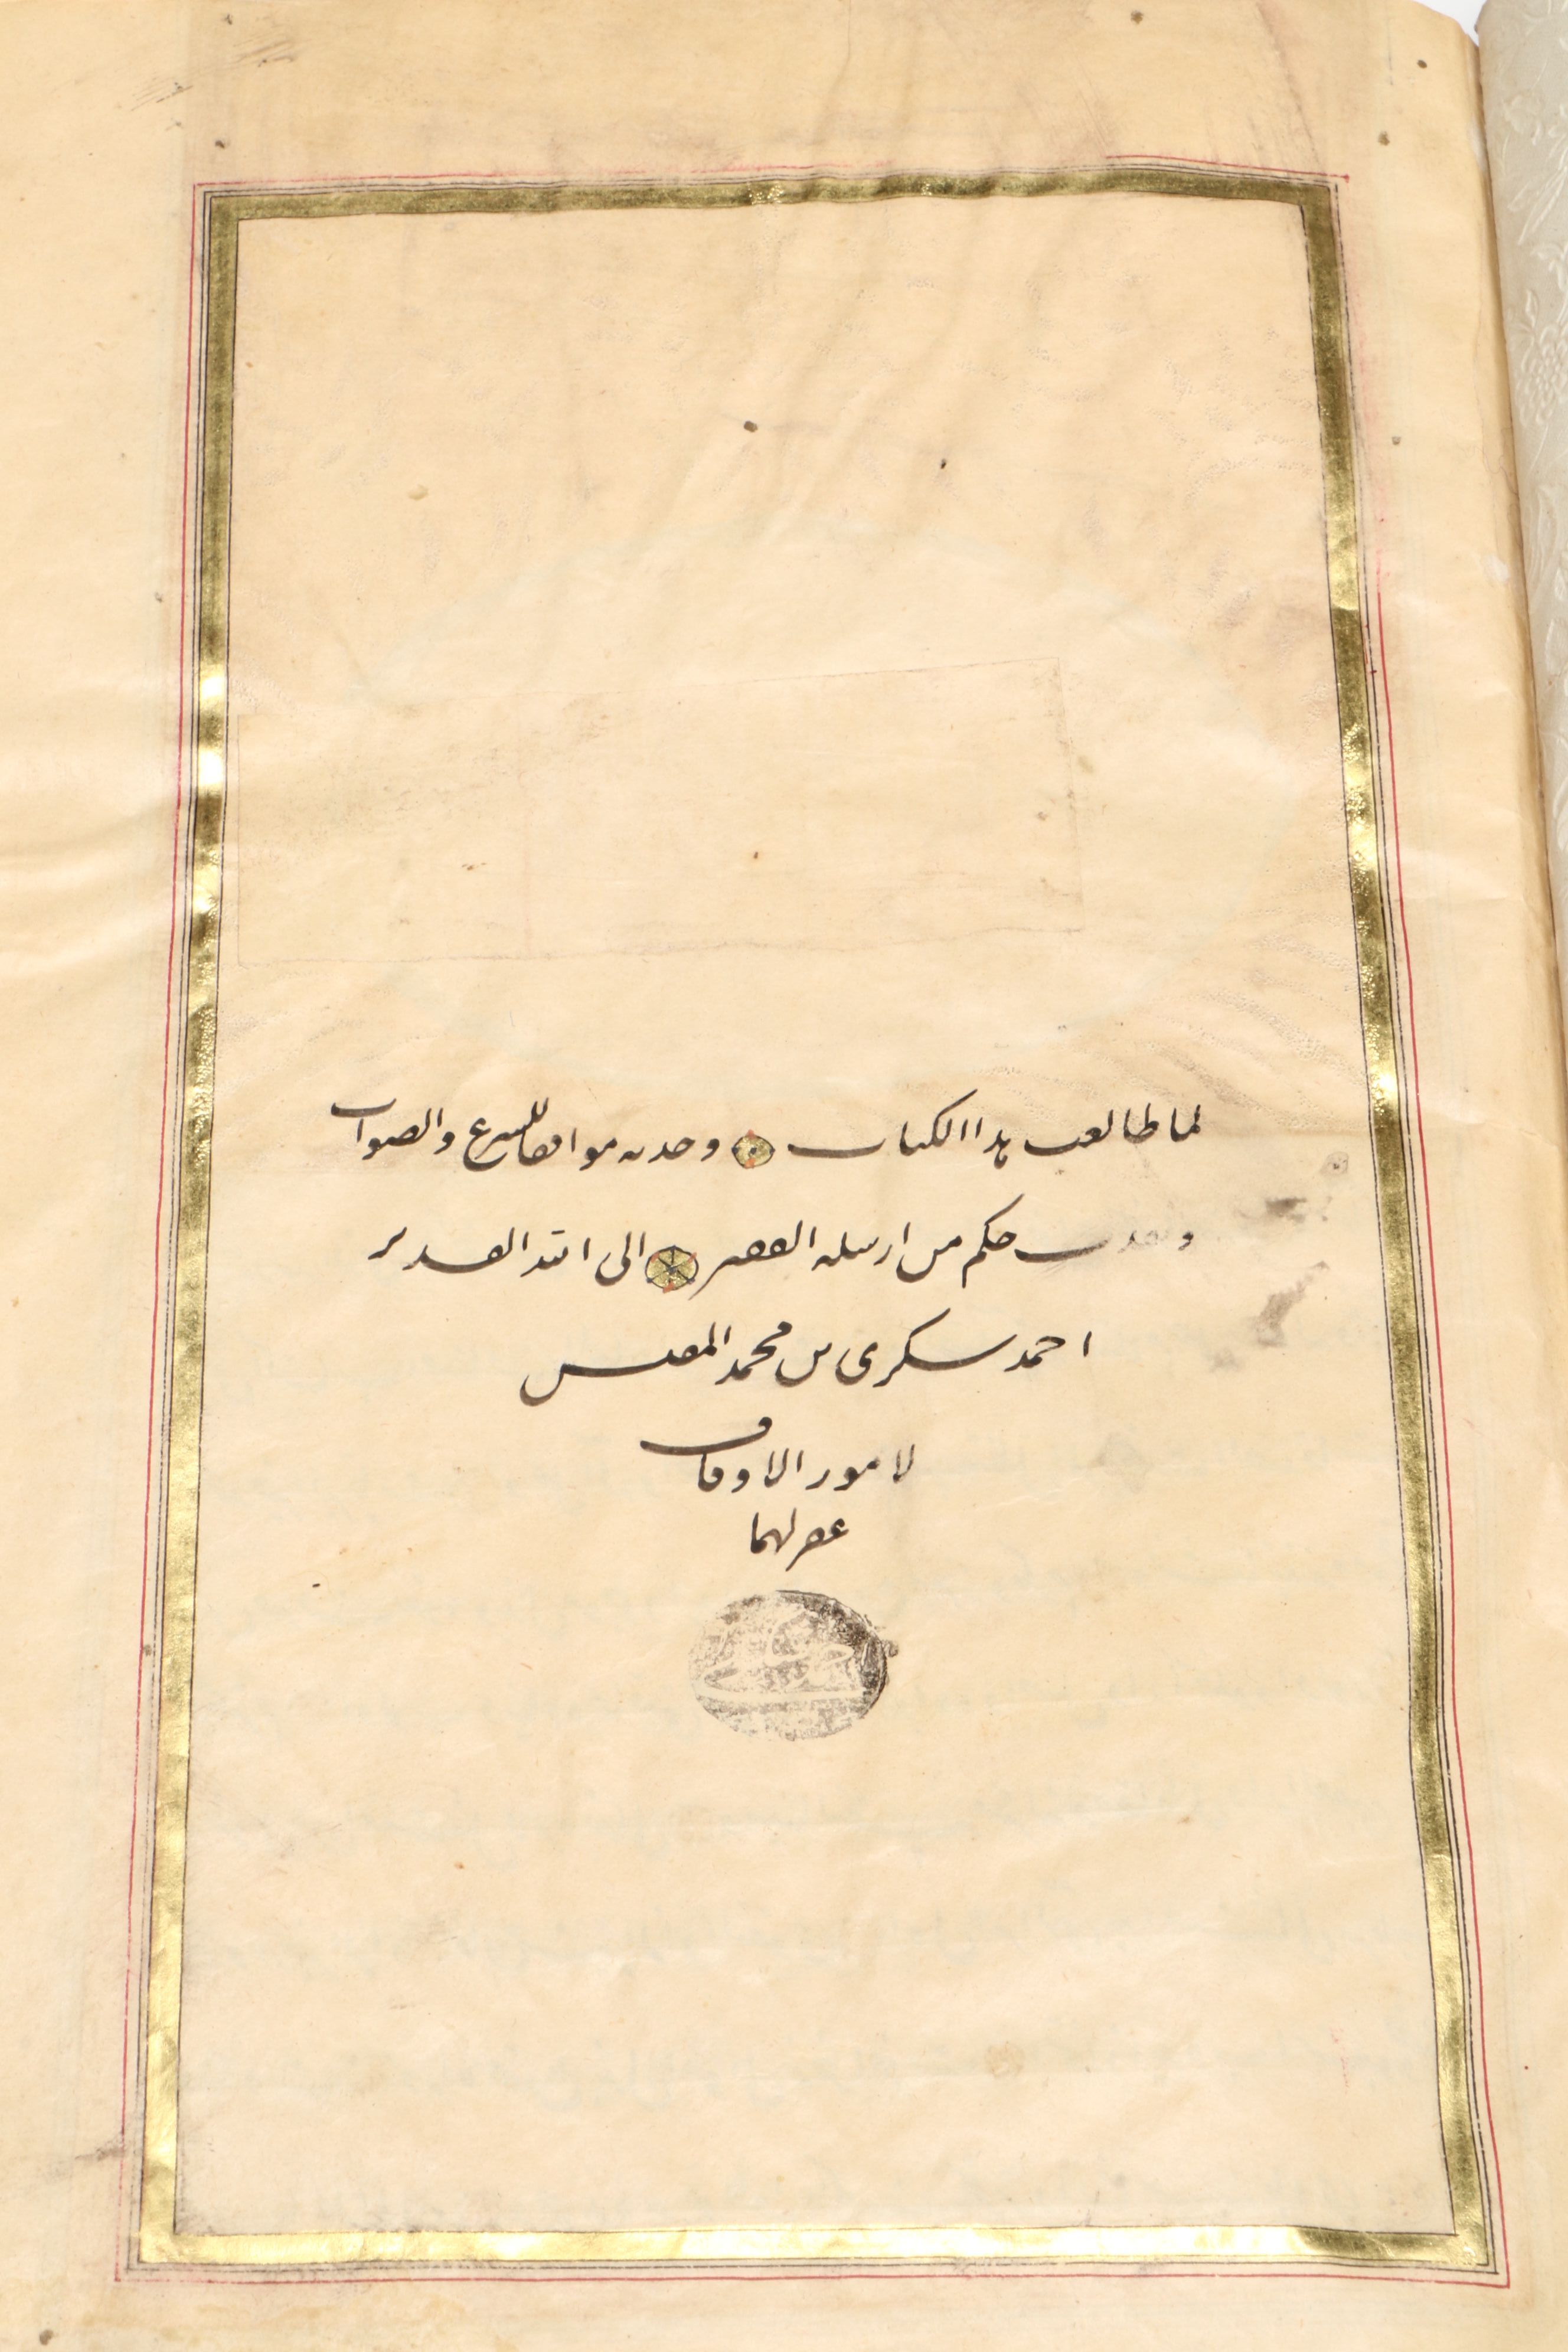 لما طالعت هذا الكتاب وجدته موافقا للشرع والصواب
ونفذت حكم من ارسله الفقير الى الله القدير
احمد سكرى بن محمد المفتش
لامور الاوقاف
غفر لهما